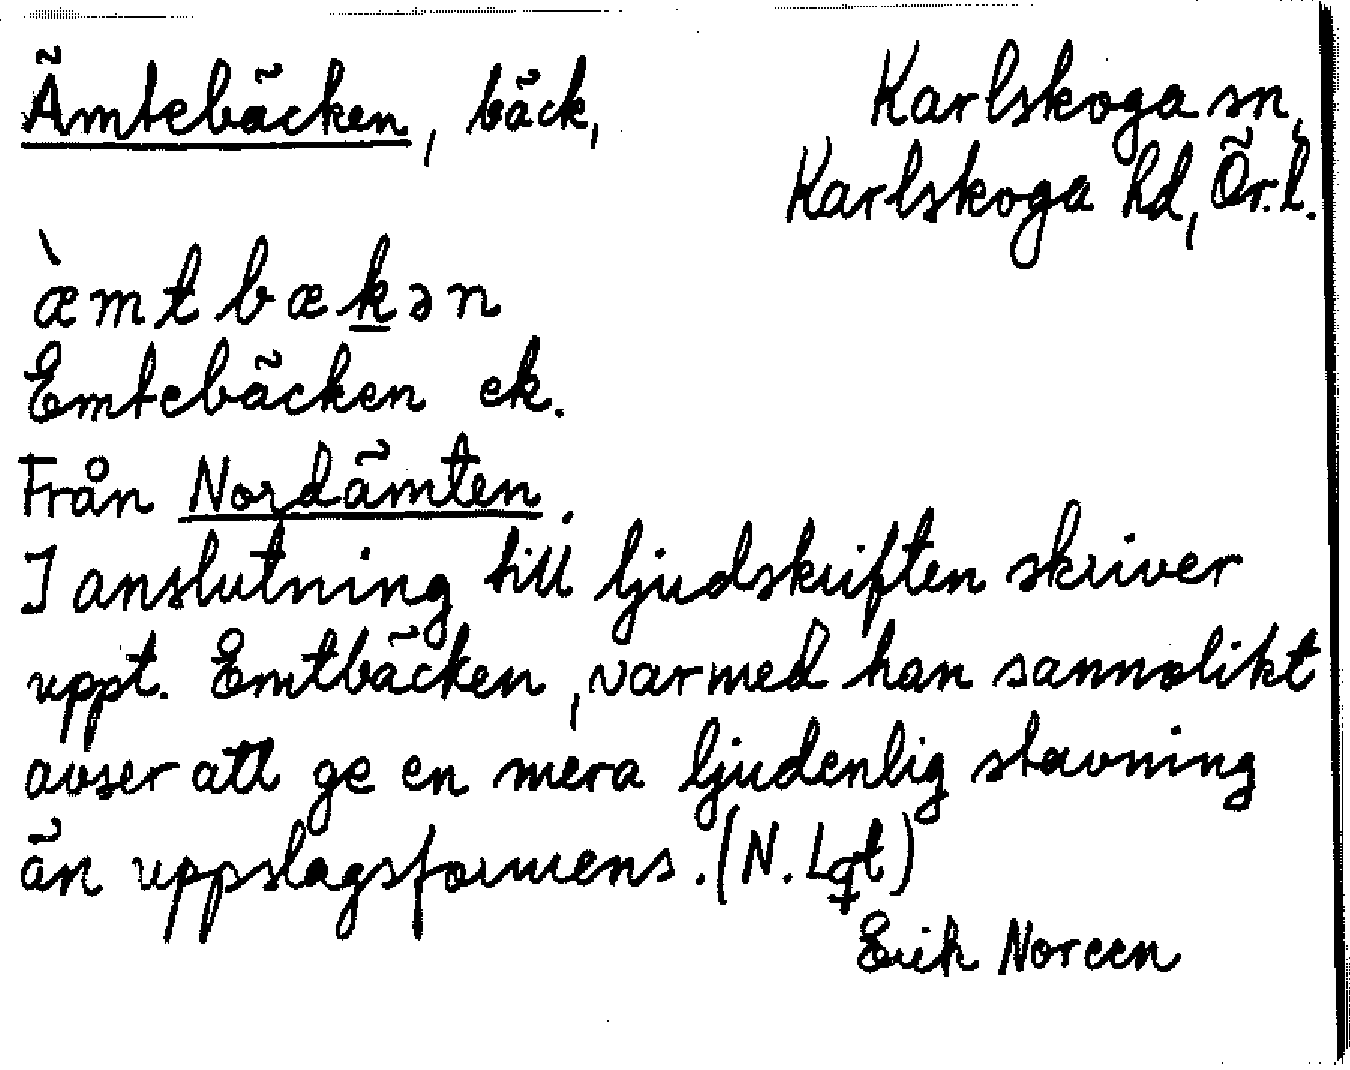 Ämtebäcken, bäck, Karlskoga sn,
Karlskoga hd, Ör.l.
æ̀mtbækən
Emtebäcken ek.
Från Nordämten.
I anslutning till ljudskriften skriver
uppt. Emtbäcken, varmed han sannolikt
avser att ge en mera ljudenlig stavning
än uppslagsformens. (N. Lgt)
Erik Noreen